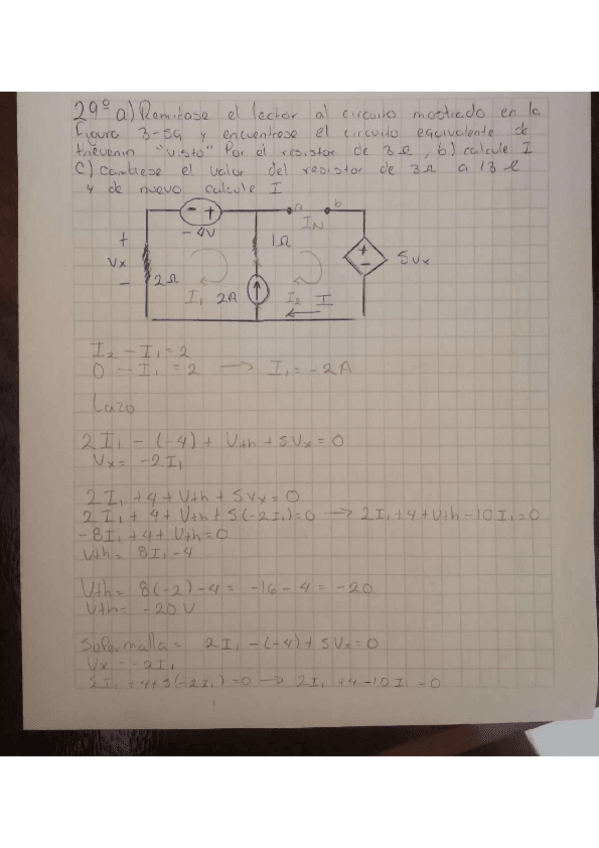 29º a) Remitase el lector al circuito mostrado en la
figura 3-59 y encuentrese el circuito equivalente de
thevenin "visto" Por el resistor de 3Ω, b) calcule I
C) Cambiese el valor del resistor de 3Ω a 13Ω
y de nuevo calcule I
- +
a b
- 4V
IN
+
Vx
-
2Ω
1Ω
+
-
5Vx
I₁ 2A I₂ I
I₂ - I₁ = 2
0 - I₁ = 2 → I₁ = -2A
Lazo
2I₁ - (-4) + Vth + 5Vx = 0
Vx = -2I₁
2I₁ + 4 + Vth + 5Vx = 0
2I₁ + 4 + Vth + 5(-2I₁) = 0 → 2I₁ + 4 + Vth - 10I₁ = 0
-8I₁ + 4 + Vth = 0
Vth = 8I₁ - 4
Vth = 8(-2) - 4 = -16 - 4 = -20
Vth = -20 V
Supermalla = 2I₁ - (-4) + 5Vx = 0
Vx = -2I₁
2I₁ + 4 + 5(-2I₁) = 0 → 2I₁ + 4 - 10I₁ = 0